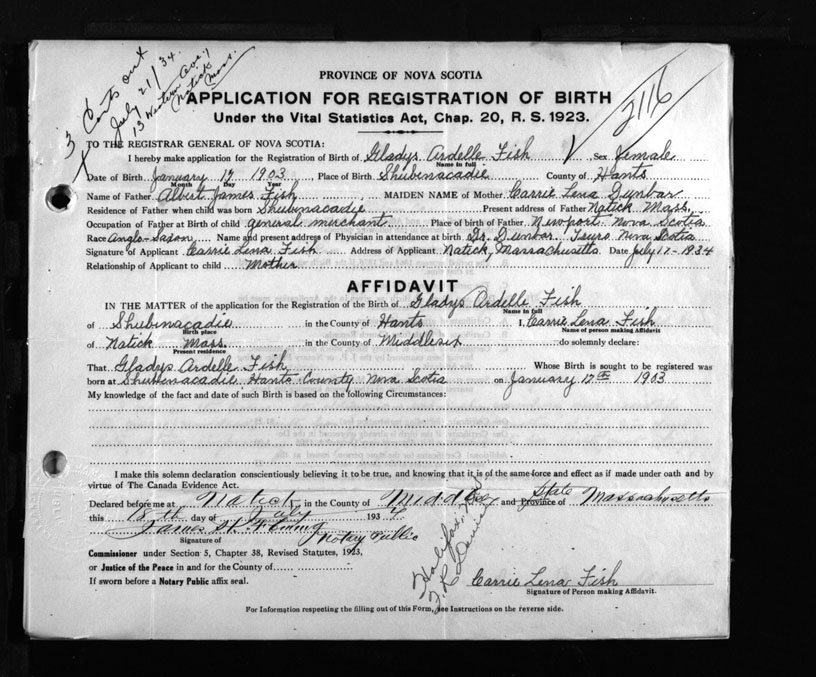 3 Certs out
July 21/34.
13 Western Ave.,
Natick
Mass.
2116
PROVINCE OF NOVA SCOTIA
APPLICATION FOR REGISTRATION OF BIRTH
Under the Vital Statistics Act, Chap. 20, R. S. 1923.
TO THE REGISTRAR GENERAL OF NOVA SCOTIA:
I hereby make application for the Registration of Birth of Gladys Ardelle Fish Sex Female
Name in full
Date of Birth January 17 1903 Place of Birth Shubinacadie County of Hants
Month Day Year
Name of Father Albert James Fish MAIDEN NAME of Mother Carrie Lena Dunbar
Residence of Father when child was born Shubinacadie Present address of Father Natick Mass.
Occupation of Father at Birth of child general merchant. Place of birth of Father Newport Nova Scotia
Race Anglo-Saxon Name and present address of Physician in attendance at birth Dr. Dunbar. Nova Scotia
Signature of Applicant Carrie Lena Fish Address of Applicant Natick, Massachusetts Date July 17-1934
Relationship of Applicant to child Mother
AFFIDAVIT
IN THE MATTER of the application for the Registration of the Birth of Gladys Ardelle Fish
Name in full
of Shubinacadie in the County of Hants I, Carrie Lena Fish
Birth place Name of person making Affidavit
of Natick Mass. in the County of Middlesex do solemnly declare:
Present residence
That Gladys Ardelle Fish Whose Birth is sought to be registered was
born at Shubenacadie Hants County Nova Scotia on January 17th 1903
My knowledge of the fact and date of such Birth is based on the following Circumstances:
I make this solemn declaration conscientiously believing it to be true, and knowing that it is of the same force and effect as if made under oath and by
virtue of The Canada Evidence Act.
Declared before me at Natick in the County of Middlesex and Province of State Massachusetts
this 18th day of July 1934
James H. Fleming Notary Public
Signature of
Commissioner under Section 5, Chapter 38, Revised Statutes, 1923,
or Justice of the Peace in and for the County of
If sworn before a Notary Public affix seal.
Halifax,
Carrie Lena Fish
Signature of Person making Affidavit.
For Information respecting the filling out of this Form, see Instructions on the reverse side.